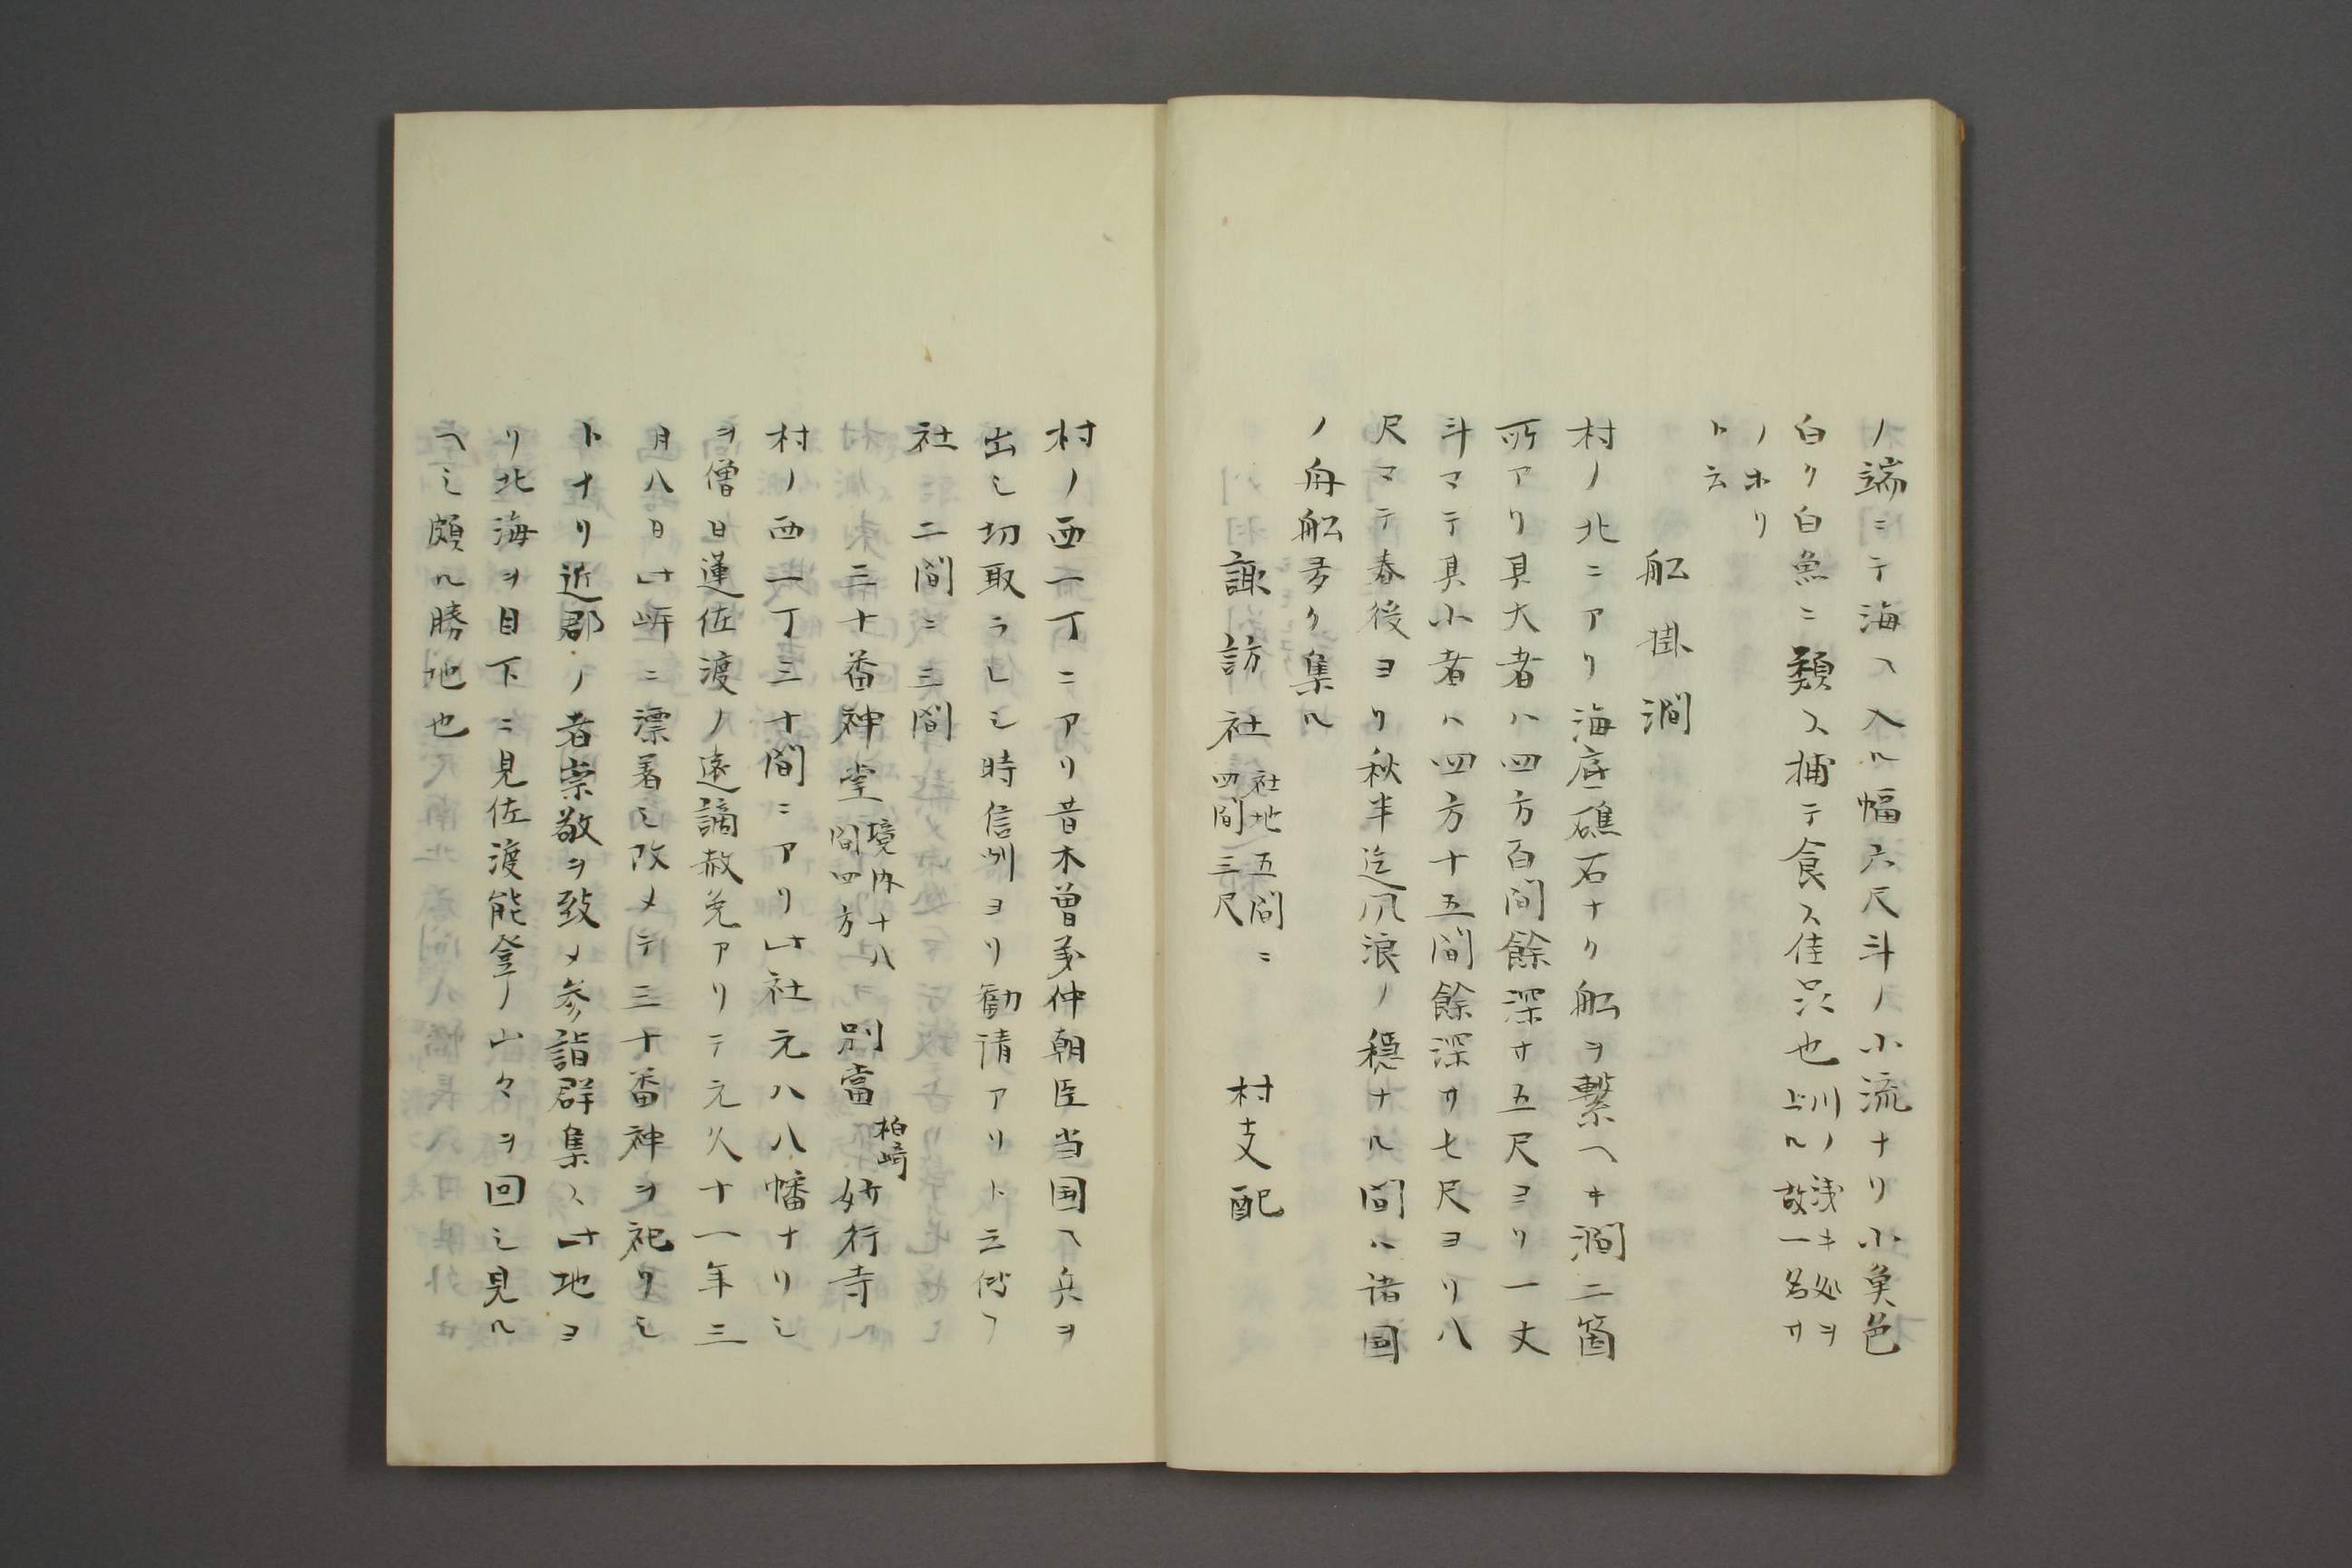 ノ端ニテ海ヘ入ル幅六尺斗ノ小流ナリ小魚色
白ク白魚ニ類ス捕テ食ス佳品也川ノ浅キ処ヲ
上ル故一名サ
ノホリ
ト云
舩掛澗
村ノ北ニアリ海底礁石ナク舩ヲ繋ヘキ澗二箇
所アリ其大者ハ四方百間餘深サ五尺ヨリ一丈
斗マテ其小者ハ四方十五間餘深サ七尺ヨリ八
尺マテ春後ヨリ秋半迄風浪ノ穏ナル間ハ諸国
ノ舟舩多ク集ル
諏訪社 社地五間ニ
四間三尺 村支配
村ノ西一丁ニアリ昔木曽義仲朝臣当国ヘ兵ヲ
出シ切取ラレシ時信州ヨリ勧請アリト云傳フ
社 二間ニ三間
三十番神堂 境内十八
間四方 別當 柏崎 妙行寺
村ノ西一丁三十間ニアリ此社元ハ八幡ナリシ
ヲ僧日蓮佐渡ノ遠謫赦免アリテ元久十一年三
月八日此岍ニ漂着シ改メテ三十番神ヲ祀リシ
トナリ近郡ノ者崇敬ヲ致メ参詣群集ス此地ヨ
リ北海ヲ目下ニ見佐渡能登ノ山々ヲ回シ見ル
ヘシ頗ル勝地也